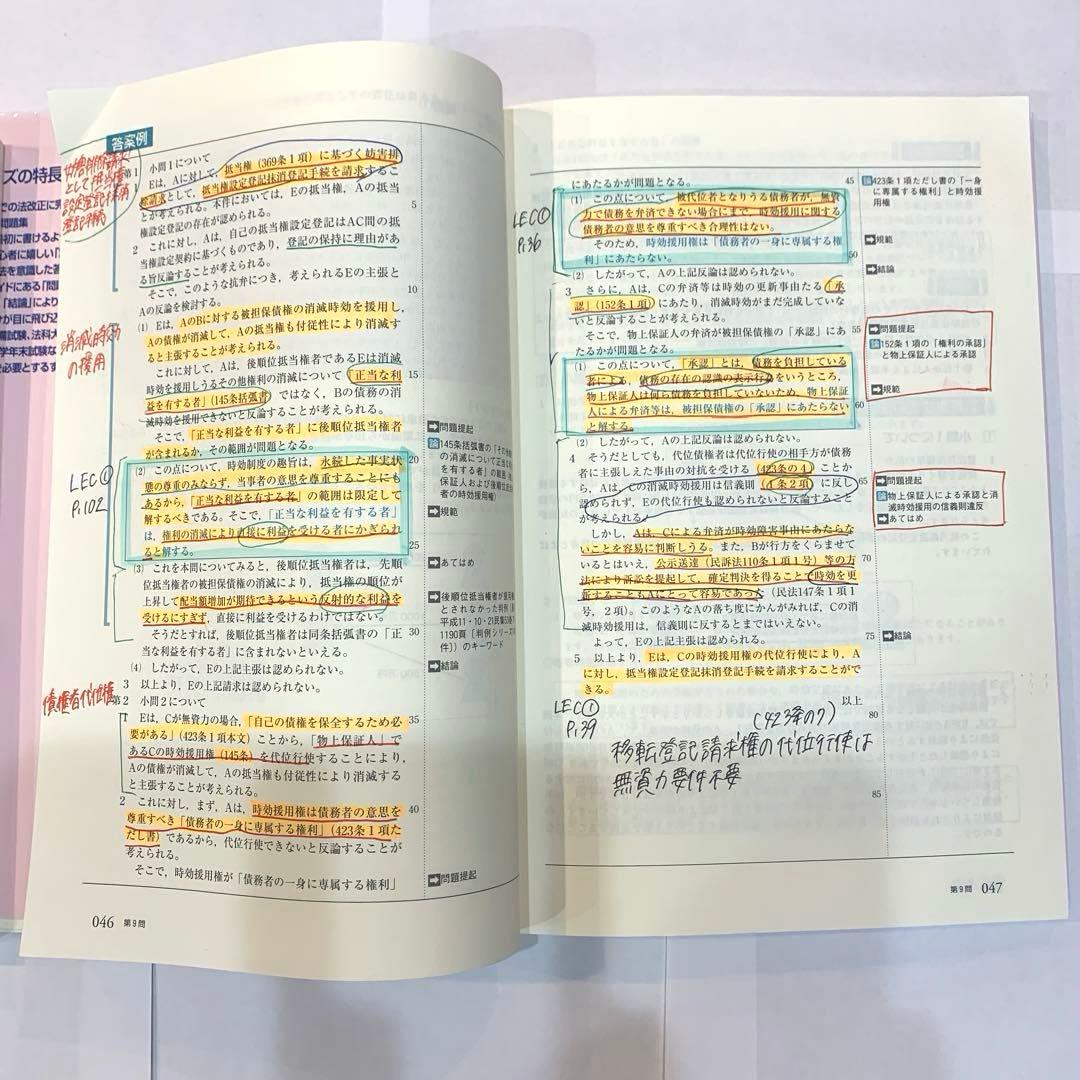 ズの特長
での法改正に
問題集
料初に書けるよう
心者に嬉しい「
去を意識した答
イドにある「問題
「結論」により
けが目に飛び込
備試験、法科大
学年末試験な
で必要とする
答案例
妨害排除請求
として抵当権
設定登記抹消
登記手続
第1 小問1について
1 Eは,Aに対して,抵当権(369条1項)に基づく妨害排
除請求として,抵当権設定登記抹消登記手続を請求するこ
とが考えられる。本件においては,Eの抵当権,Aの抵当
権設定登記の存在が認められる。
5
2 これに対し,Aは,自己の抵当権設定登記はAC間の抵
当権設定契約に基づくものであり,登記の保持に理由があ
る旨反論することが考えられる。
そこで,このような抗弁につき,考えられるEの主張と
Aの反論を検討する。
10
消滅時効
の援用
(1) Eは,AのBに対する被担保債権の消滅時効を援用し,
Aの債権が消滅し,Aの抵当権も付従性により消滅す
ると主張することが考えられる。
これに対し,Aは,後順位抵当権者であるEは消滅
時効を援用しうるその他権利の消滅について「正当な利
益を有する者」(145条括弧書)ではなく,Bの債務の消
滅時効を援用できないと反論することが考えられる。
15
そこで,「正当な利益を有する者」に後順位抵当権者
が含まれるか,その範囲が問題となる。
LEC①
P.102
(2) この点について,時効制度の趣旨は,永続した事実状
態の尊重のみならず,当事者の意思を尊重することにも
あるから,「正当な利益を有する者」の範囲は限定して
解するべきである。そこで,「正当な利益を有する者」
は,権利の消滅により直接に利益を受ける者にかぎられ
ると解する。
20
25
(3) これを本問についてみると,後順位抵当権者は,先順
位抵当権者の被担保債権の消滅により,抵当権の順位が
上昇して配当額増加が期待できるという反射的な利益を
受けるにすぎず,直接に利益を受けるわけではない。
そうだとすれば,後順位抵当権者は同条括弧書の「正
当な利益を有する者」に含まれないといえる。
30
(4) したがって,Eの上記主張は認められない。
3 以上より,Eの上記請求は認められない。
債権者代位権
第2 小問2について
1 Eは,Cが無資力の場合,「自己の債権を保全するため必
要がある」(423条1項本文)ことから,「物上保証人」で
あるCの時効援用権(145条)を代位行使することにより,
Aの債権が消滅して,Aの抵当権も付従性により消滅する
と主張することが考えられる。
35
2 これに対し,まず,Aは,時効援用権は債務者の意思を
尊重すべき「債務者の一身に専属する権利」(423条1項た
だし書)であるから,代位行使できないと反論することが
考えられる。
40
そこで,時効援用権が「債務者の一身に専属する権利」
問題提起
論145条括弧書の「その他
の消滅について正当な
を有する者」の範囲(
保証人および後順位抵
者の時効援用権)
規範
あてはめ
後順位抵当権者が援用
とされなかった判例(
平成11・10・21民集53巻7
1190頁〔判例シリーズ
件〕)のキーワード
結論
問題提起
046 第9問
にあたるかが問題となる。
LEC①
P.36
(1) この点について,被代位者となりうる債務者が,無資
力で債務を弁済できない場合にまで,時効援用に関する
債務者の意思を尊重すべき合理性はない。
そのため,時効援用権は「債務者の一身に専属する権
利」にあたらない。
45
50
(2) したがって,Aの上記反論は認められない。
3 さらに,Aは,Cの弁済等は時効の更新事由たる「承
認」(152条1項)にあたり,消滅時効がまだ完成していな
いと反論することが考えられる。
そこで,物上保証人の弁済が被担保債権の「承認」にあ
たるかが問題となる。
55
(1) この点について,「承認」とは,債務を負担している
者による,債務の存在の認識の表示行為をいうところ,
物上保証人は何ら債務を負担していないため,物上保証
人による弁済等は,被担保債権の「承認」にあたらない
と解する。
60
(2) したがって,Aの上記反論は認められない。
4 そうだとしても,代位債権者は代位行使の相手方が債務
者に主張しえた事由の対抗を受ける(423条の4)ことか
ら,Aは,Cの消滅時効援用は信義則(1条2項)に反し
認められず,Eの代位行使も認められないと反論すること
が考えられる。
65
しかし,Aは,Cによる弁済が時効障害事由にあたらな
いことを容易に判断しうる。また,Bが行方をくらませて
いるとはいえ,公示送達(民訴法110条1項1号)等の方
法により訴訟を提起して,確定判決を得ることで時効を更
新することもAにとって容易であった(民法147条1項1
号,2項)。このようなAの落ち度にかんがみれば,Cの消
滅時効援用は,信義則に反するとまではいえない。
70
よって,Eの上記主張は認められる。
75
5 以上より,Eは,Cの時効援用権の代位行使により,A
に対し,抵当権設定登記抹消登記手続を請求することがで
きる。
以上
80
85
LEC①
P.39
(423条の7)
移転登記請求権の代位行使は
無資力要件不要
論423条1項ただし書の「一身
に専属する権利」と時効援
用権
規範
結論
問題提起
論152条1項の「権利の承認」
と物上保証人による承認
規範
問題提起
論物上保証人による承認と消
滅時効援用の信義則違反
あてはめ
結論
第9問 047